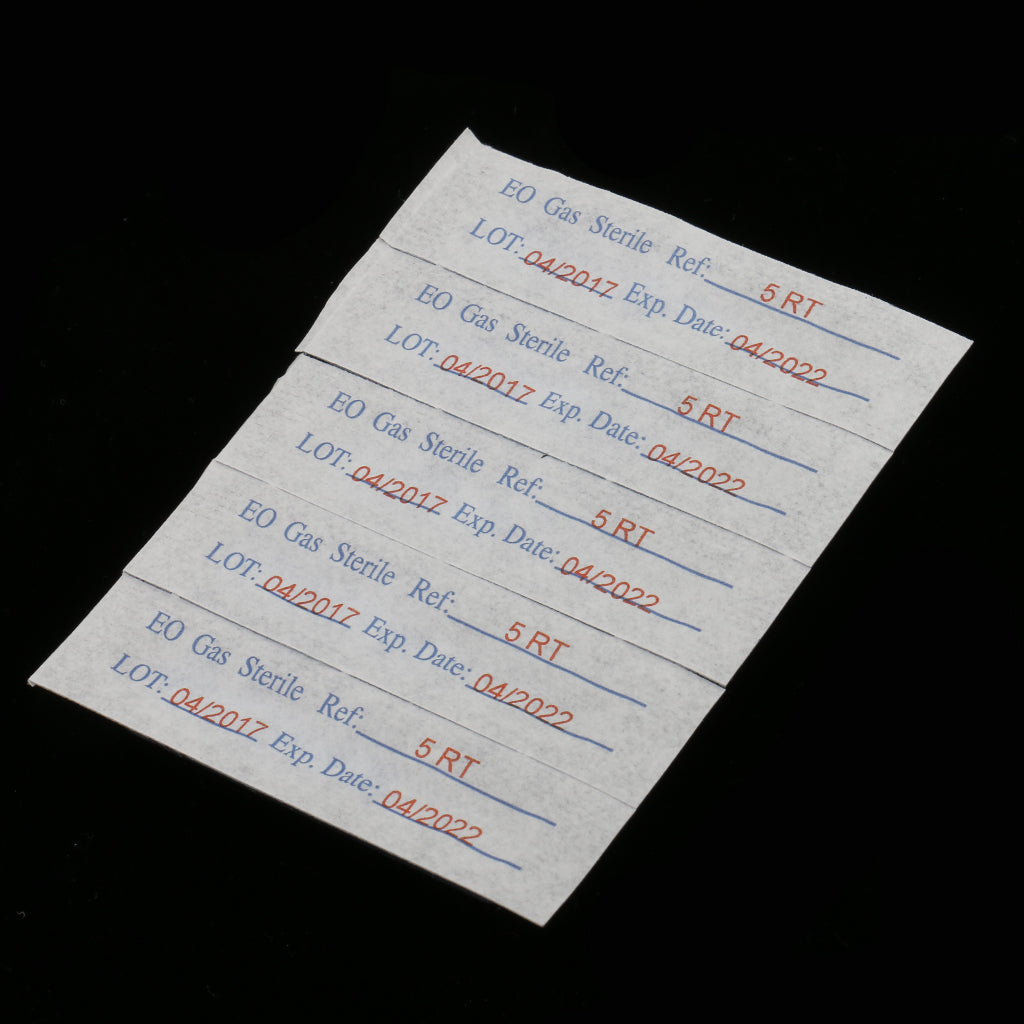 EO Gas Sterile Ref: 5 RT
LOT: 04/2017 Exp. Date: 04/2022
EO Gas Sterile Ref: 5 RT
LOT: 04/2017 Exp. Date: 04/2022
EO Gas Sterile Ref: 5 RT
LOT: 04/2017 Exp. Date: 04/2022
EO Gas Sterile Ref: 5 RT
LOT: 04/2017 Exp. Date: 04/2022
EO Gas Sterile Ref: 5 RT
LOT: 04/2017 Exp. Date: 04/2022